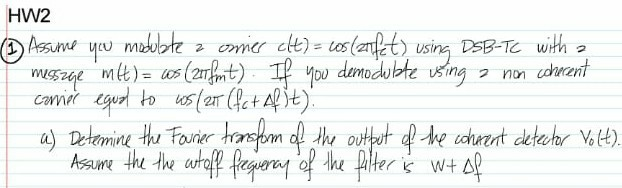 HW2
① Assume you modulate a carrier c(t) = cos(2πfct) using DSB-TC with a
message m(t) = cos(2πfmt). If you demodulate using a non coherent
carrier equal to cos(2π(fc+Δf)t).
a) Determine the Fourier transform of the output of the coherent detector Vo(t).
Assume the the cutoff frequency of the filter is W+Δf